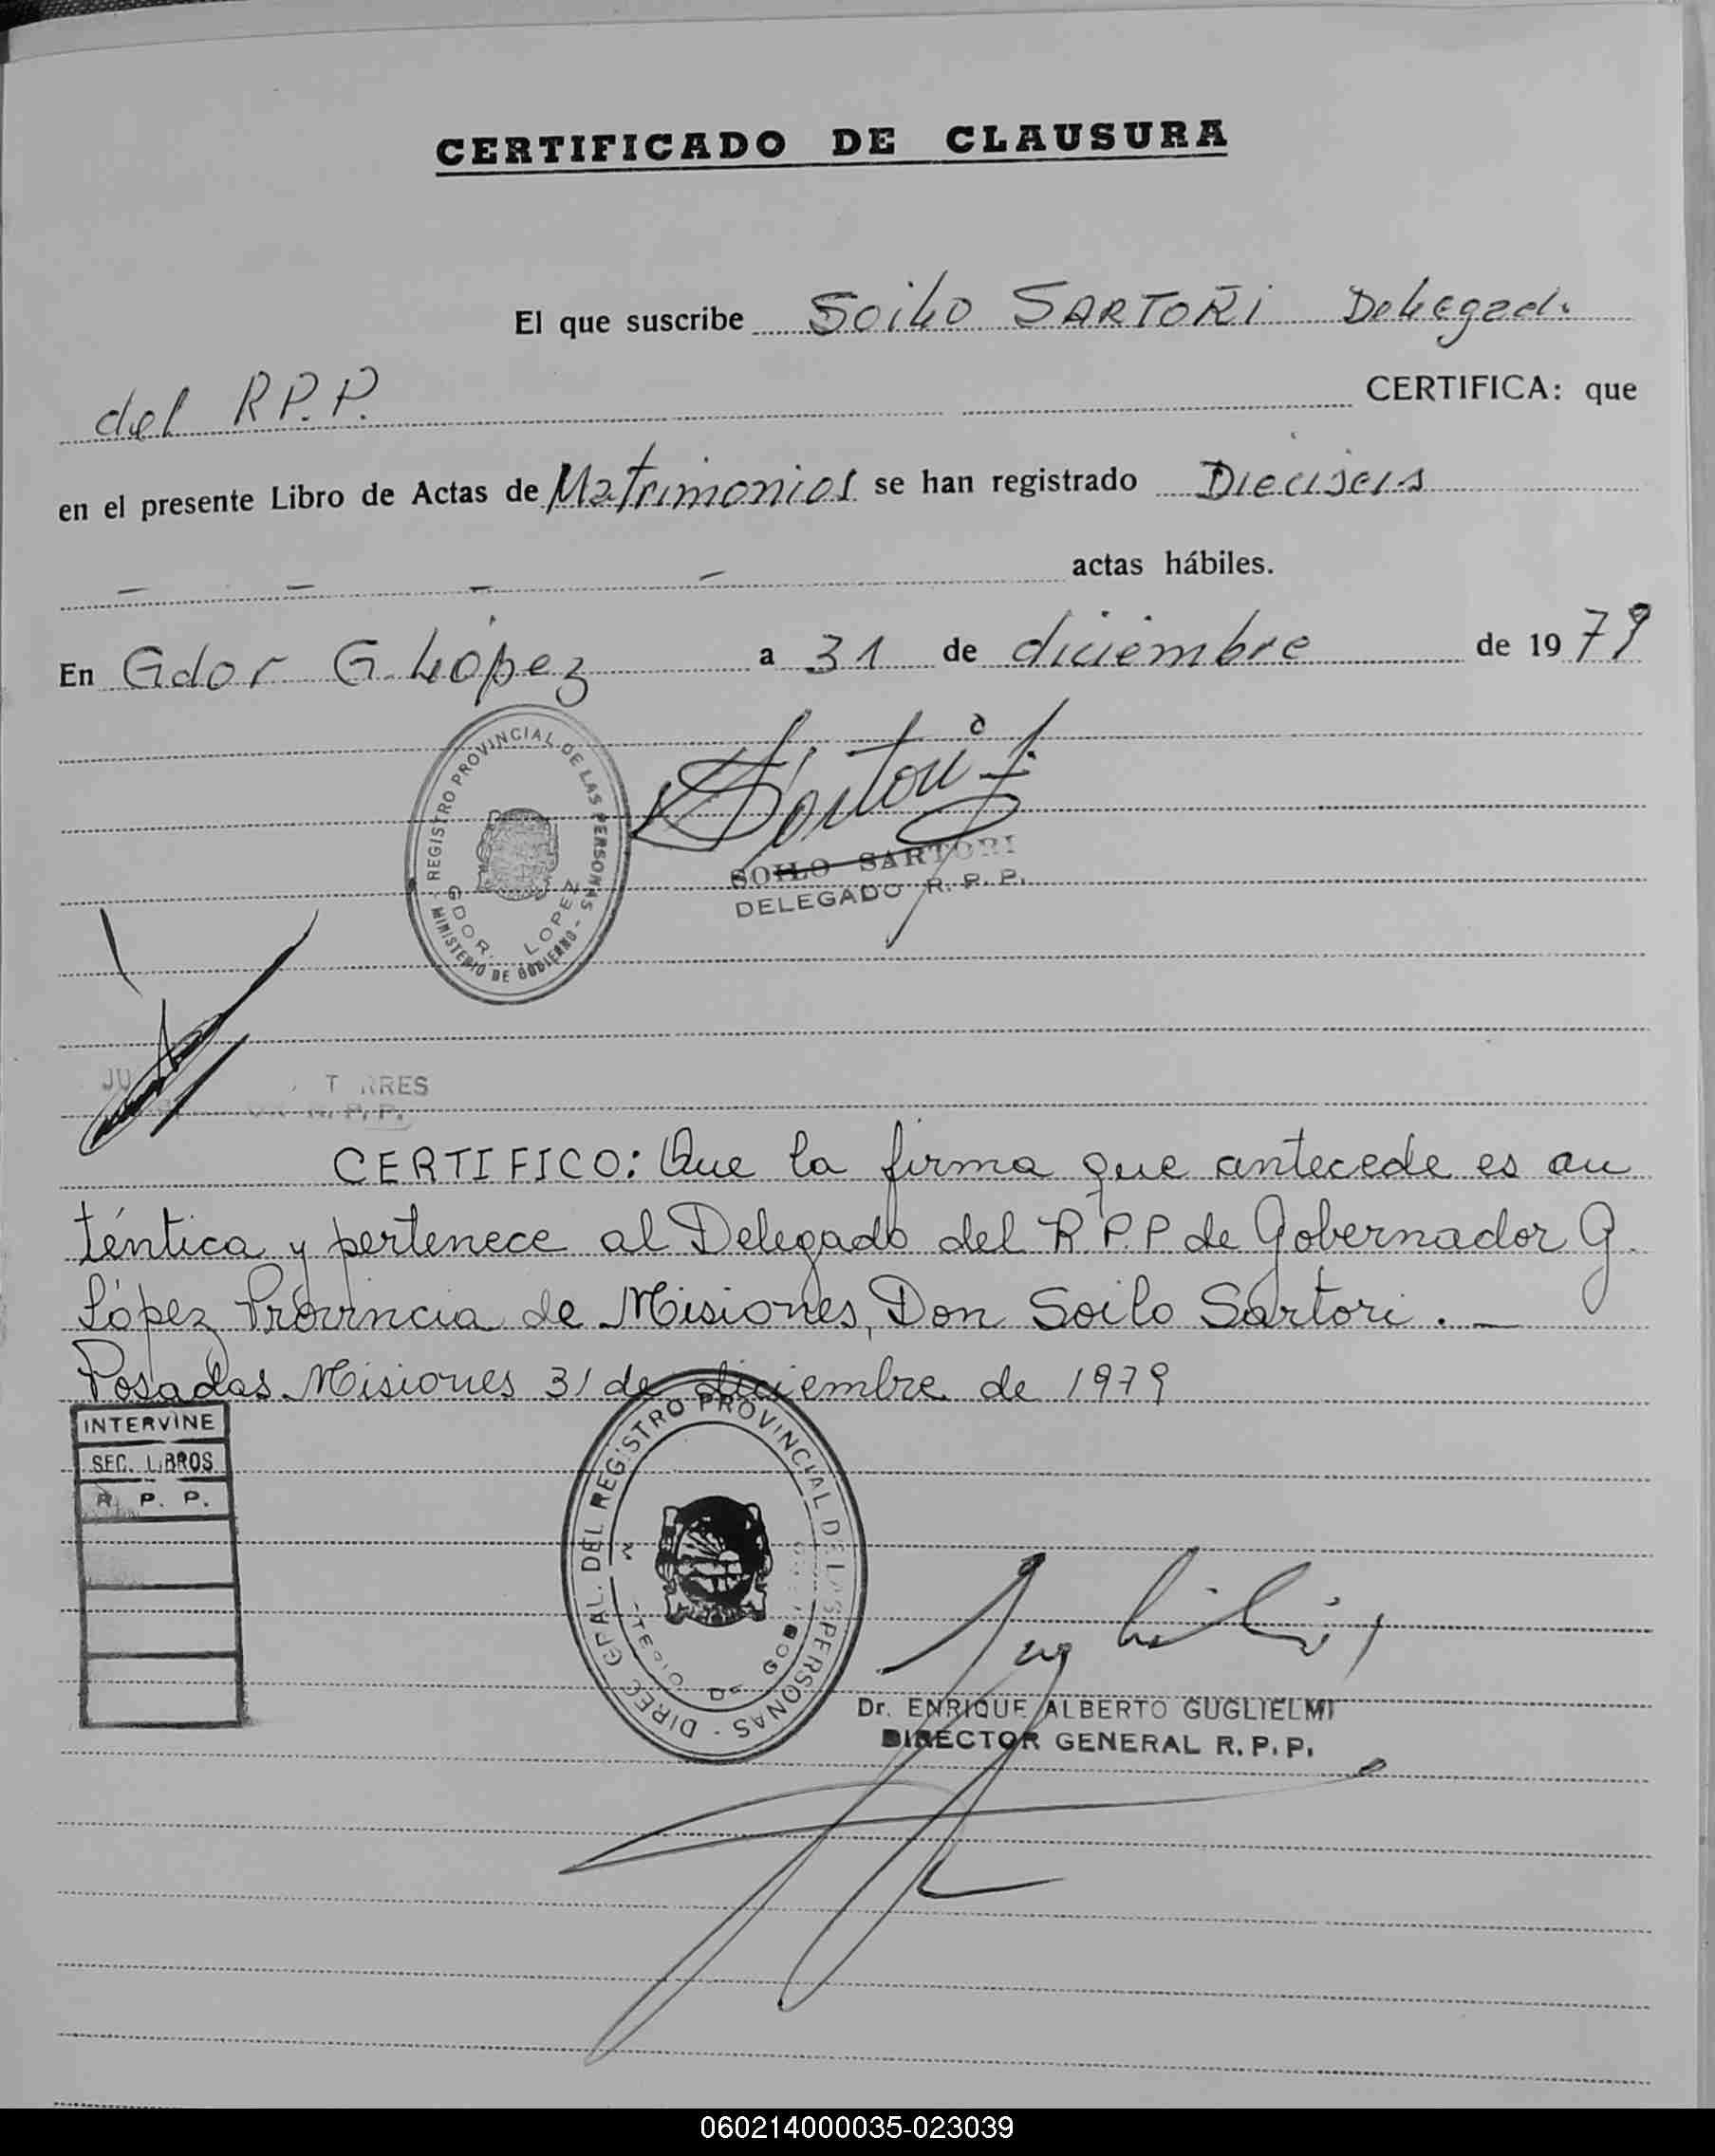 CERTIFICADO DE CLAUSURA
El que suscribe Soilo SARTORi Delegado
del R.P.P. CERTIFICA: que
en el presente Libro de Actas de Matrimonios se han registrado Dieciseis
– – – – actas hábiles.
En Gdor G. López a 31 de diciembre de 1979
REGISTRO PROVINCIAL DE LAS PERSONAS
GDOR. LOPEZ
MINISTERIO DE GOBIERNO
Sartori
SOILO SARTORI
DELEGADO R. P. P.
CERTIFICO: Que la firma que antecede es au
téntica y pertenece al Delegado del R.P.P de Gobernador G.
López Provincia de Misiones, Don Soilo Sartori. —
Posadas Misiones 31 de diciembre de 1979
INTERVINE
SEC. LIBROS
R. P. P.
DIREC. GRAL. DEL REGISTRO PROVINCIAL DE LAS PERSONAS
Dr. ENRIQUE ALBERTO GUGLIELMI
DIRECTOR GENERAL R. P. P.
060214000035-023039